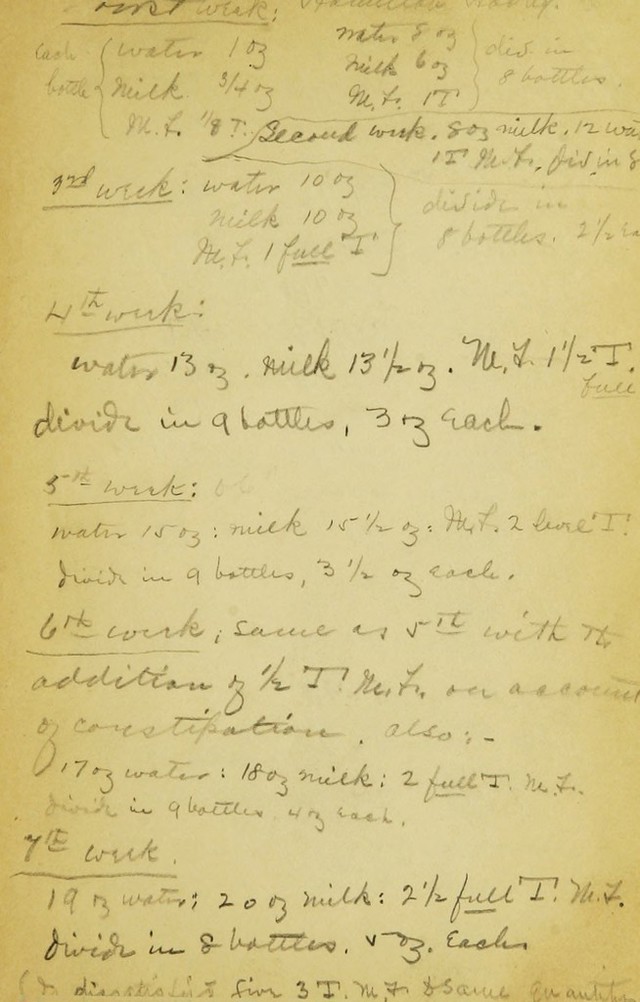 First week:
each bottle { water 1 oz
Milk 3/4 oz
M.F. 1/8 T.
water 8 oz
Milk 6 oz
M.F. 1 T } div in 8 bottles.
Second week. 8 oz milk. 12 wa
1 T M.F. div in 8
3rd week: water 10 oz
milk 10 oz
M.F. 1 full T } divide in 8 bottles. 2 1/2 ea
4th week:
water 13 oz. milk 13 1/2 oz. M.F. 1 1/2 T.
full
divide in 9 bottles, 3 oz each.
5th week:
water 15 oz: milk 15 1/2 oz: M.F. 2 level T.
divide in 9 bottles, 3 1/2 oz each.
6th week, same as 5th with the
addition of 1/2 T. M.F. on account
of constipation. also:-
17 oz water: 18 oz milk: 2 full T. M.F.
divide in 9 bottles. 4 oz each.
7th week.
19 oz water; 20 oz milk: 2 1/2 full T. M.F.
divide in 8 bottles. 5 oz. each
give 3 T. M.F. & same quantity